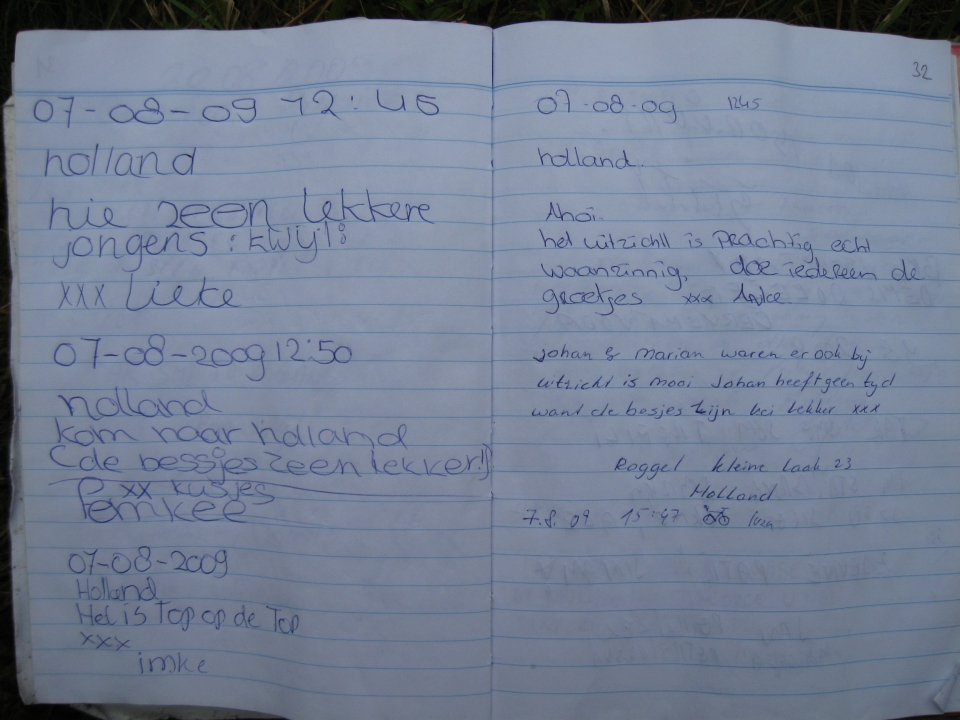 07-08-09 12:45
holland
hie zeen lekkere
jongens : kwijl :
xxx Lieke
07-08-2009 12:50
holland
kom naar holland
(de bessjes zeen lekker!!)
xx kusjes
Femkee
07-08-2009
Holland
Het is Top op de Top
xxx
imke
32
07-08-09 1245
holland.
Ahoi.
het uitzicht is prachtig echt
waanzinnig, doe iedereen de
groetjes xxx Anke
Johan & Marian waren er ook bij
uitzicht is mooi Johan heeft geen tyd
want de besjes zijn bei lekker xxx
Roggel kleine laak 23
Holland
7.8.09 15:47